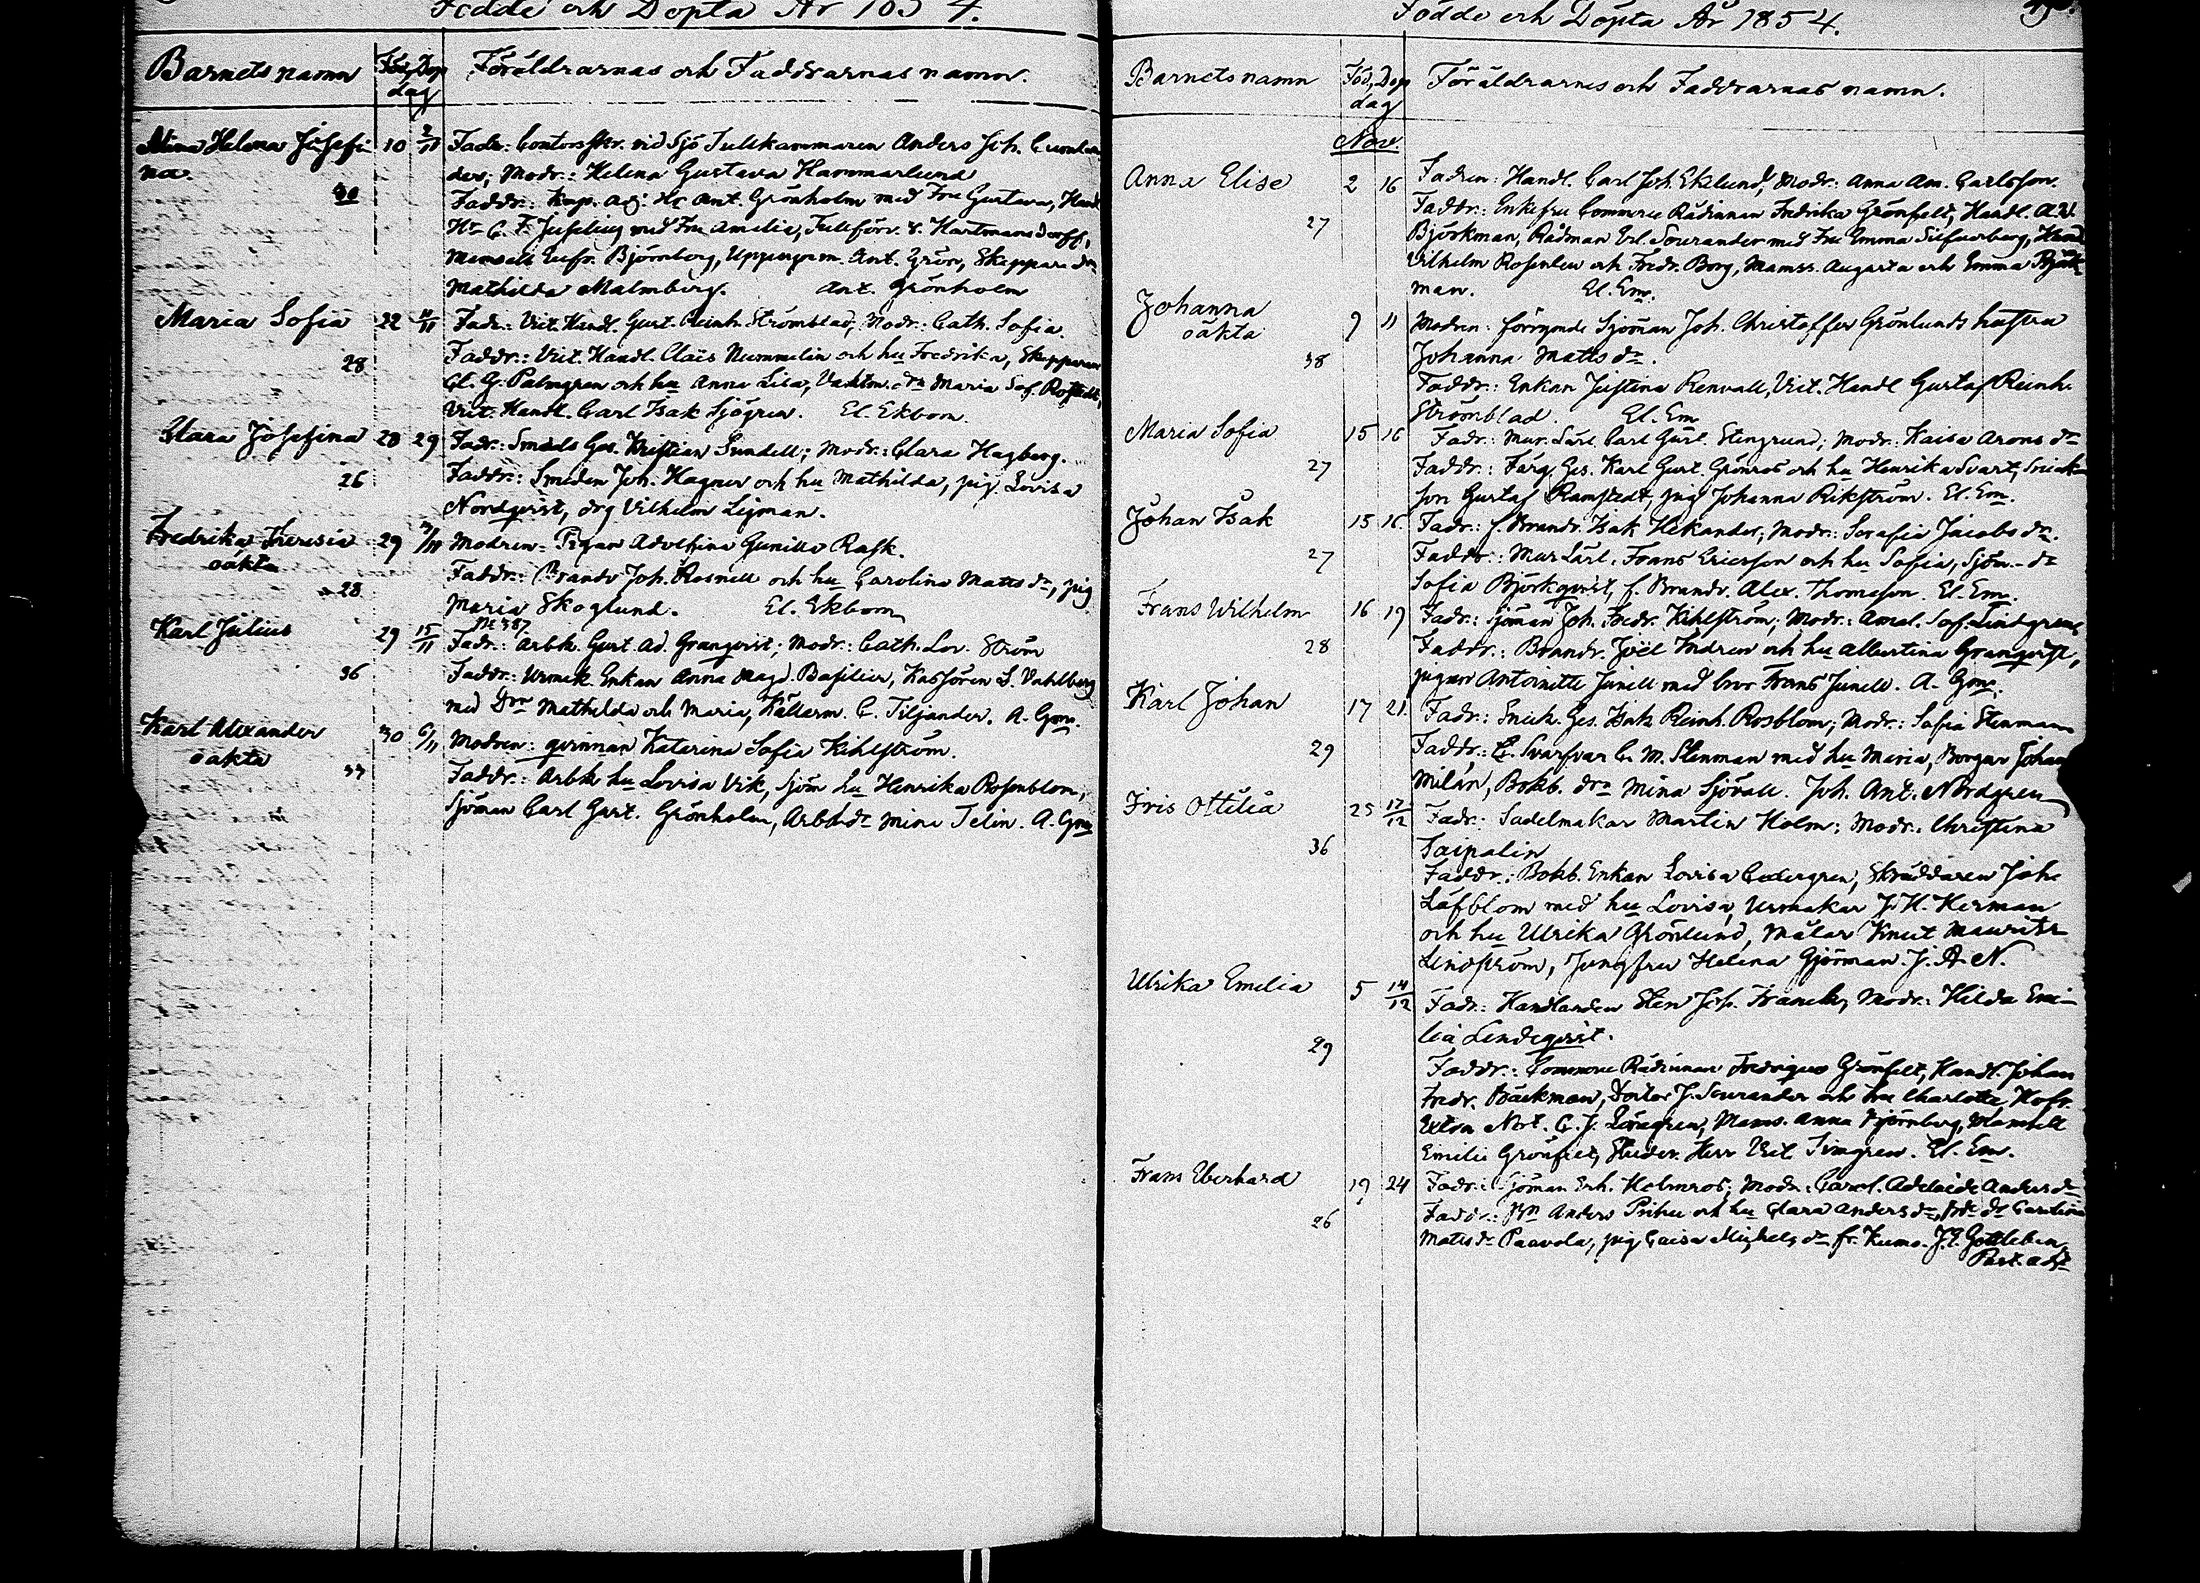 Födde och Döpta År 1854.
Barnets namn Föd. Dop dag Föräldrarnas och Faddrarnas namn.
Mina Helena Josefi- 10 2/11 Fadr: Contorsskr. vid Sjö Tullkammaren Anders Joh.
na. der; Modr: Helena Gustava Hammarlund
Faddr: Kap. Ant. Grönholm med Fru Gustava, Handl.
Hr C. F. Juselius med Fru Amelia, Tullförv. v. Hartmansdorff,
Mamsell Eufr. Björnberg, Uppsyn m. Ant. Grön, Skeppare dr
Mathilda Malmberg. Ant. Grönholm
Maria Sofia 22 11/11 Fadr: Vict. Handl. Gust. Reinh. Strömblad, Modr: Cath. Sofia.
28 Faddr: Vict. Handl. Claës Nummelin och hu Fredrika, Skepparen
C. G. Palmgren och hu Anna Lisa, Vaktm. dr Maria Sof. Rostedt,
Vict. Handl. Carl Isak Sjögren. El. Ekbom
Clara Josefina 28 29 Fadr: Smeds Ges. Kristian Sundell; Modr: Clara Hagberg.
26 Faddr: Smeden Joh. Hagner och hu Mathilda, pig. Lovisa
Nordqvist, drg Vilhelm Ligman.
Fredrika Theresia 29 Modren: Pigan Adolfina Gunilla Rask.
oäkta
28 Faddr: Brandv Joh. Rosnell och hu Carolina Matts dr, pig
Maria Skoglund. El. Ekbom
№ 387
Karl Julius 29 15/11 Fadr: Arbk. Gust. Ad. Granqvist; Modr: Cath. Lov. Ström
36 Faddr: Urmak. Enkan Anna Magd. Basilier, Kassören L. Vahlberg
med Drr Mathilda och Maria, Källarm. C. Tiljander. A. Gnn.
Karl Alexander 30 6/11 Modren: qvinnan Katarina Sofia Kihlström.
oäkta
Faddr: Arbk hu Lovisa Vik, Sjöm hu Henrika Rosenblom,
Sjöman Carl Gust. Grönholm, Arbk dr Mina Telin. A. Gnn
Födde och Döpta År 1854.
Barnets namn Föd. Dop dag Föräldrarnes och Faddrarnas namn.
Nov.
Anna Elise 2 16 Fadren: Handl. Carl Joh. Eklund, Modr: Anna Am. Carlsson.
27 Faddr: Enkefru Commerce Rådinnan Fredrika Grönfelt, Handl. A. W.
Björkman, Rådman Erl. Sourander med Fru Emma Silfverberg, Handl
Vilhelm Rosenlew och Fredr. Borg, Mamss. Augusta och Emma Björk-
man. El. Em.
Johanna 9 11 Modren: förrymde Sjöman Joh. Christoffer Grönlunds hustru
oäkta
38 Johanna Matts dr.
Faddr: Enkan Justina Renvall, Vict. Handl Gustaf Reinh.
Strömblad El. Em
Maria Sofia 15 16 Fadr: Mur. Lärl. Carl Gust. Stengrund; Modr: Kaisa Arons dr
27 Faddr: Färg. Ges. Karl Gust. Grönros och hu Henrika Svart, Snick.
son Gustaf Ramstedt, pig Johanna Rikström. El. Em.
Johan Isak 15 16 Fadr: f. Brandv. Isak Hekander, Modr: Serafia Jacobs dr.
27 Faddr: Mur Lärl. Frans Ericsson och hu Sofia, Sjöm. dr
Sofia Björkqvist, f. Brandv. Alex. Thomeson. El. Em.
Frans Wilhelm 16 19 Fadr: Sjöman Joh. Fredr. Kihlström; Modr: Amal. Sof. Lindgren
28 Faddr: Brandv. Joël Indren och hu Albertina Granqvist,
pigan Antoinette Junell med bror Frans Junell. A. Gnn.
Karl Johan 17 21 Fadr: Snick. Ges. Isak Reinh. Rosblom; Modr: Sofia Stenman
29 Faddr: Svarfvar C. M. Stenman med hu Maria, Borgar Johan
Milán, Bokb. drr Mina Sjövall. Joh. Ant. Nordgren
Iris Ottilia 25 17/12 Fadr: Sadelmakar Martin Holm; Modr: Christina
36 Taipalin
Faddr: Bokb. Enkan Lovisa Cedergren, Skräddaren Joh.
Löfblom med hu Lovisa, Urmakar J. H. Herman
och hu Ulrika Grönlund, Målar Knut Mauritz
Lindström, Jungfru Helena Gjörman. J. A. N.
Ulrika Emilia 5 14/12 Fadr: Handlanden Sten Joh. Franck, Modr: Hilda Emi-
29 lia Lindeqvist.
Faddr: Commerce Rådinnan Fredrique Grönfelt, Handl. Johan
Fredr. Bäckman, Doctor J. Sourander och fru Charlotta, Hofr.
Extra Not. C. J. Lönegren, Mams. Anna Björnberg, Mamsell
Emilie Grönfelt, Studer. Herr Vict Timgren. El. Em.
Frans Eberhard 19 24 Fadr: Sjöman Erh. Holmros; Modr: Carol. Adelaide Anders dr
26 Faddr: Bn Anders Prihu och hu Clara Anders dr, dr Carolina
Matts dr Paavola, pig Caisa Michels dr fr. Kumo. J. E. Gottleben
Past. adj.